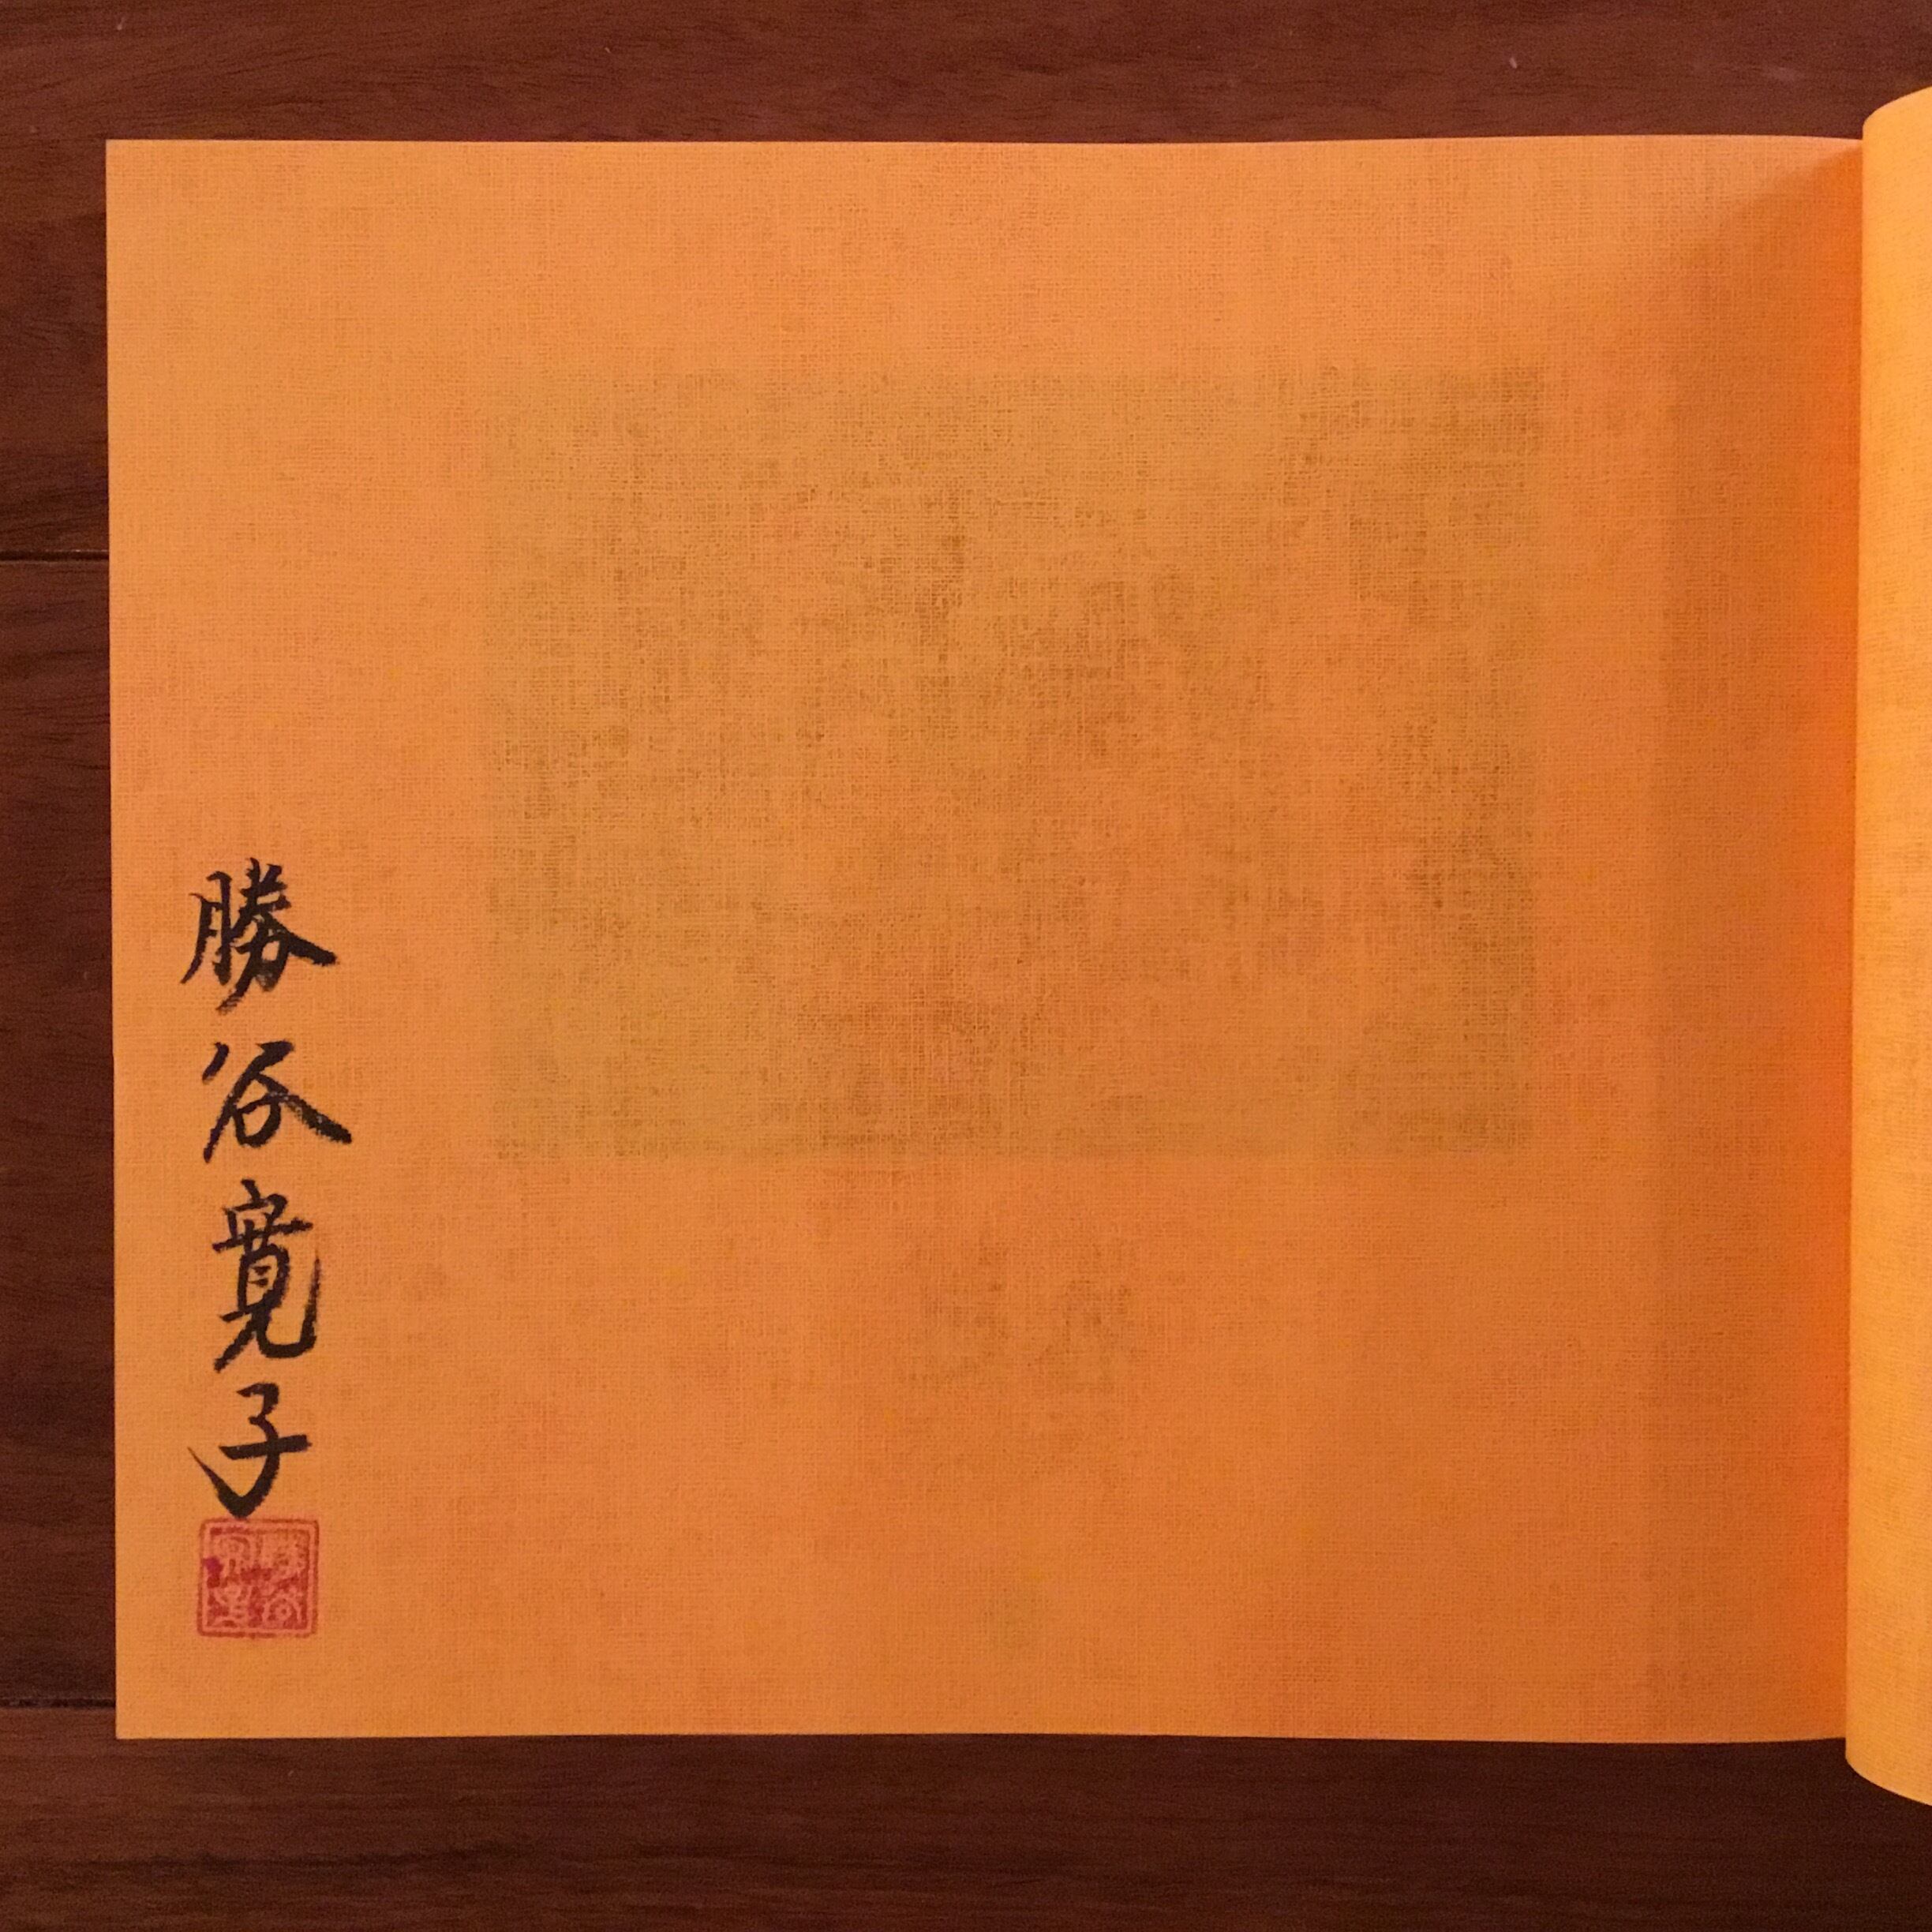 勝谷寛子